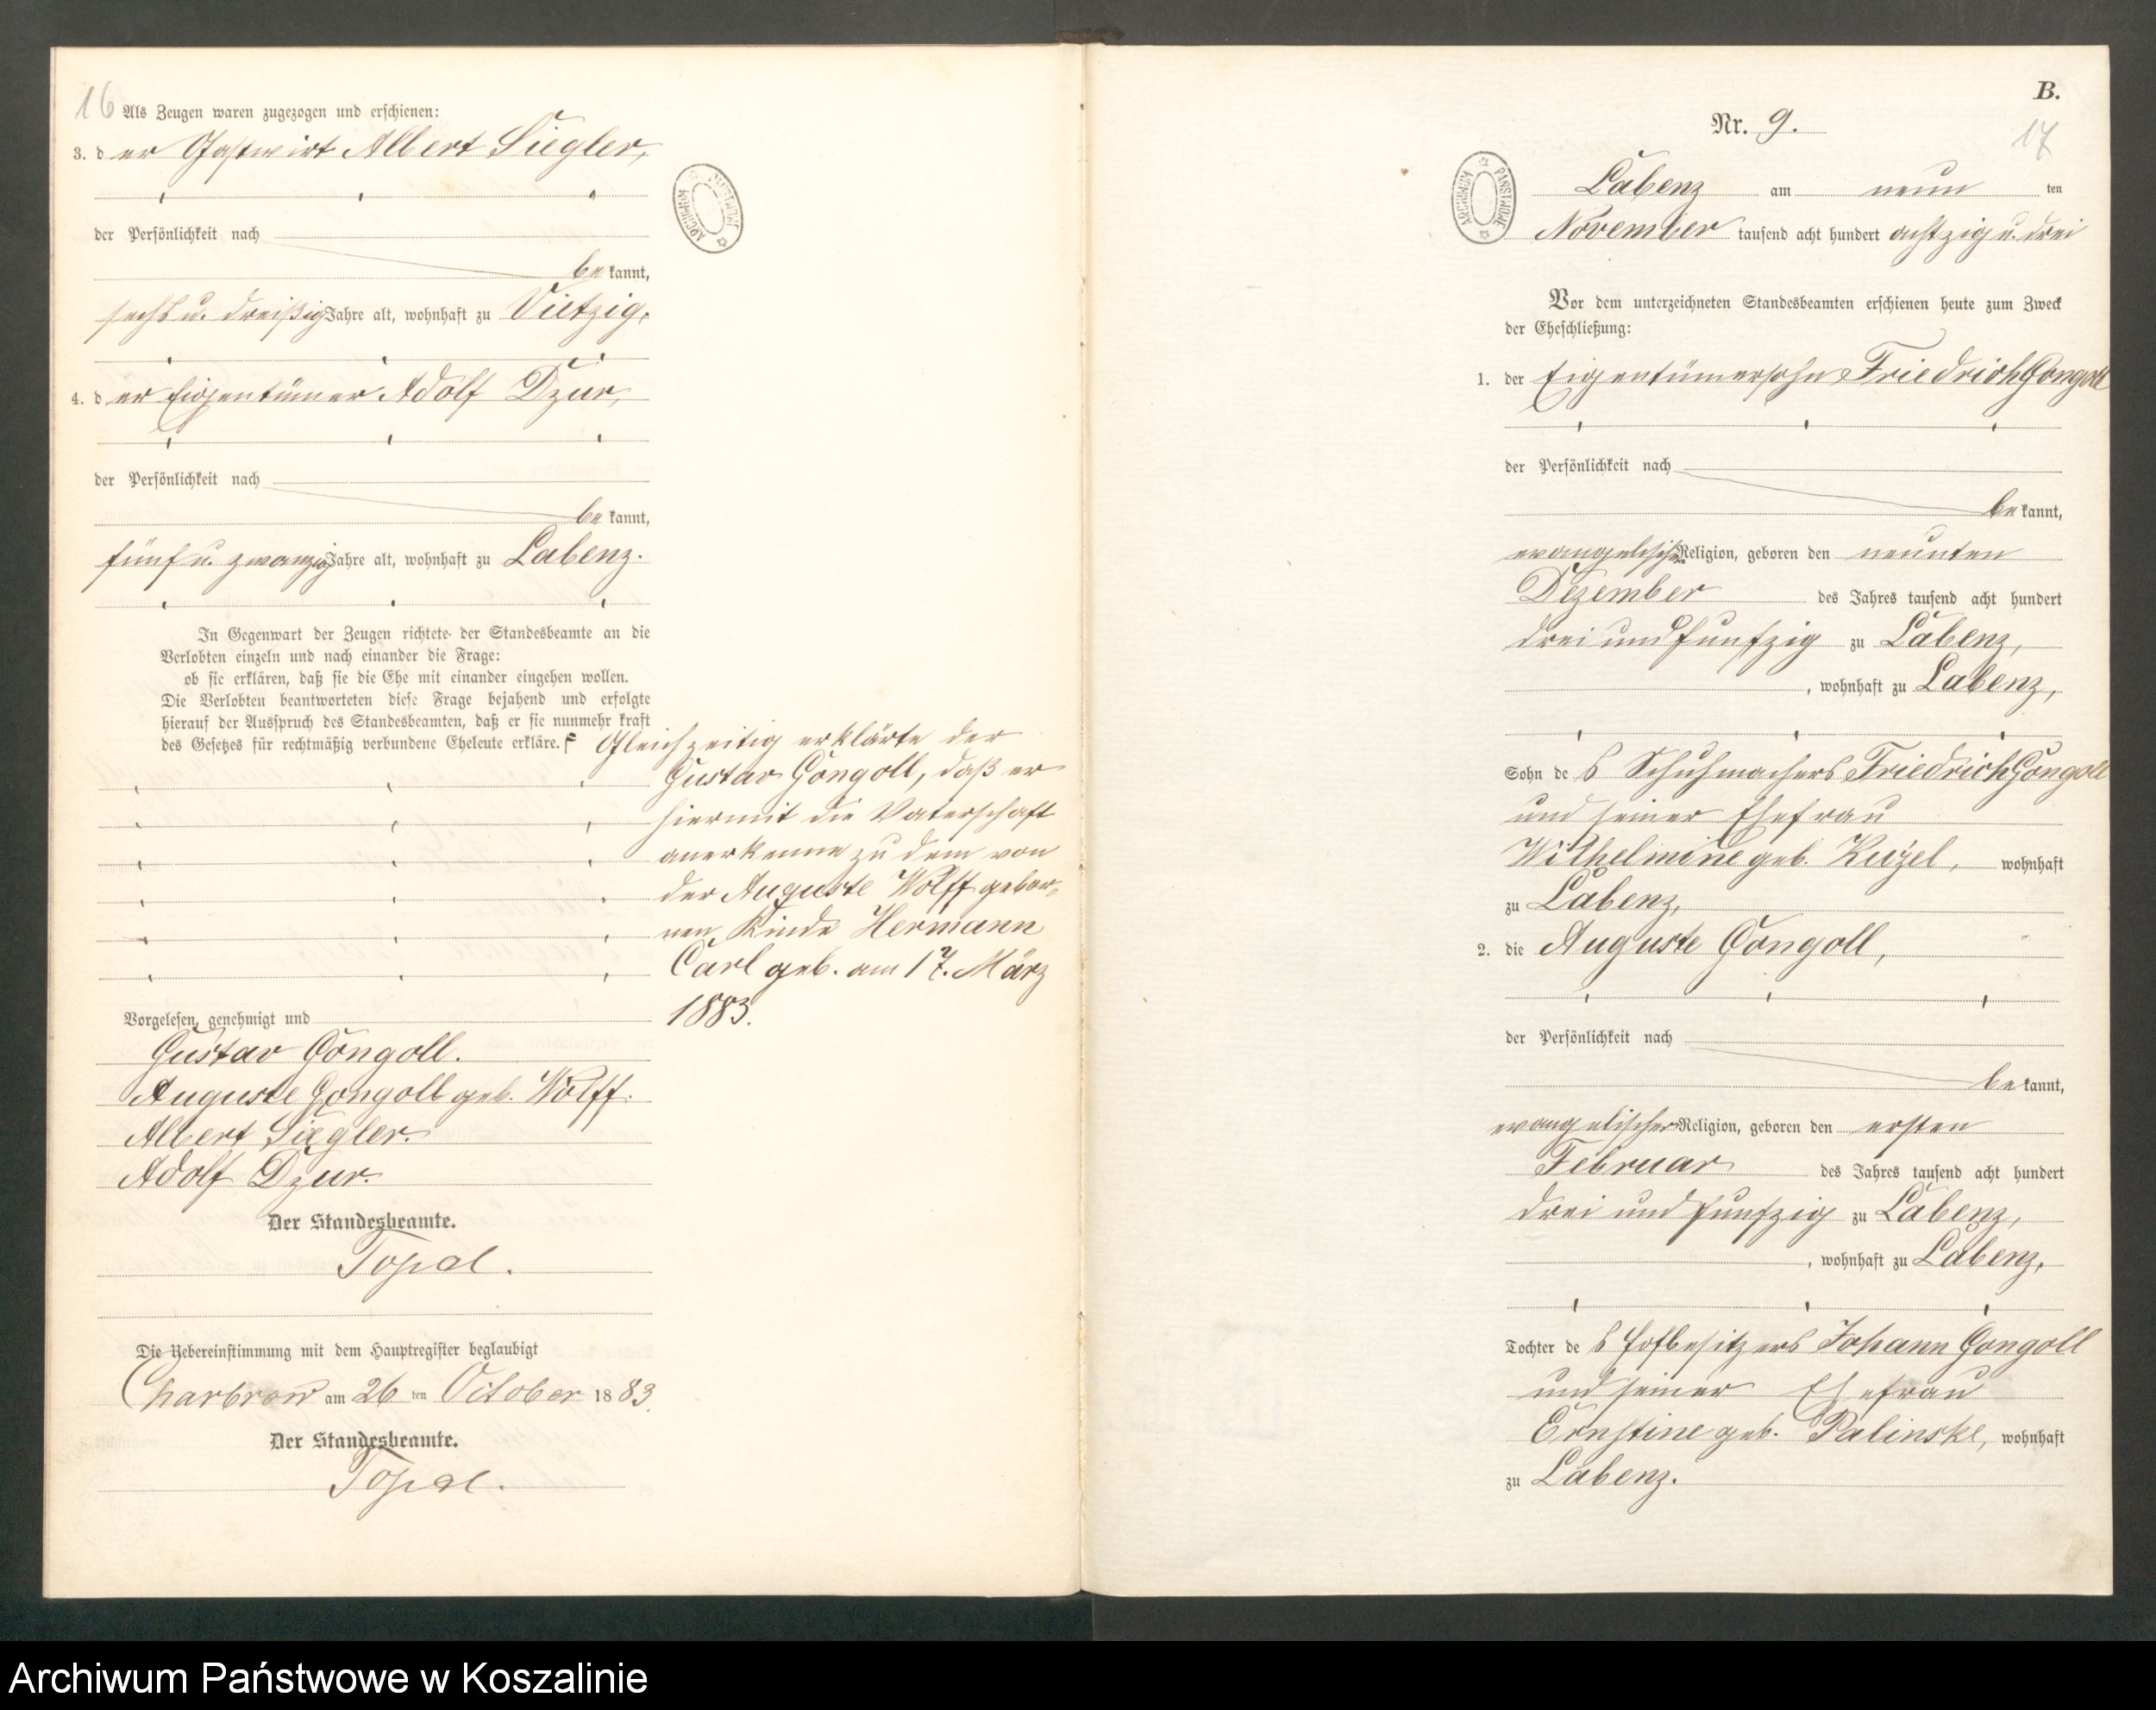 16
Als Zeugen waren zugezogen und erschienen:
3. d er Gastwirt Albert Siegler,
der Persönlichkeit nach
be kannt,
sechs u. dreißig Jahre alt, wohnhaft zu Vietzig,
4. d er Eigentümer Adolf Dzur,
der Persönlichkeit nach
be kannt,
fünf u. zwanzig Jahre alt, wohnhaft zu Labenz.
In Gegenwart der Zeugen richtete der Standesbeamte an die
Verlobten einzeln und nach einander die Frage:
ob sie erklären, daß sie die Ehe mit einander eingehen wollen.
Die Verlobten beantworteten diese Frage bejahend und erfolgte
hierauf der Ausspruch des Standesbeamten, daß er sie nunmehr kraft
des Gesetzes für rechtmäßig verbundene Eheleute erkläre.
Gleichzeitig erklärte der
Gustav Gongoll, daß er
hiermit die Vaterschaft
anerkenne zu dem von
der Auguste Wolff gebor-
nen Kinde Hermann
Carl geb. am 17. März
1883.
Vorgelesen, genehmigt und
Gustav Gongoll.
Auguste Gongoll geb. Wolff.
Albert Siegler.
Adolf Dzur.
Der Standesbeamte.
Topel.
Die Uebereinstimmung mit dem Hauptregister beglaubigt
Charbrow am 26 ten October 18 83.
Der Standesbeamte.
Topel.
ARCHIWUM PAŃSTWOWE
B.
Nr. 9.
17
ARCHIWUM PAŃSTWOWE
Labenz am neun ten
November tausend acht hundert achtzig u. drei
Vor dem unterzeichneten Standesbeamten erschienen heute zum Zweck
der Eheschließung:
1. der Eigentümersohn Friedrich Gongoll
der Persönlichkeit nach
be kannt,
evangelischer Religion, geboren den neunten
Dezember des Jahres tausend acht hundert
drei und funfzig zu Labenz,
, wohnhaft zu Labenz,
Sohn de s Schuhmachers Friedrich Gongoll
und seiner Ehefrau
Wilhelmine geb. Kuzel, wohnhaft
zu Labenz,
2. die Auguste Gongoll,
der Persönlichkeit nach
be kannt,
evangelischer Religion, geboren den ersten
Februar des Jahres tausend acht hundert
drei und funfzig zu Labenz,
, wohnhaft zu Labenz,
Tochter de s Hofbesitzers Johann Gongoll
und seiner Ehefrau
Ernstine geb. Palinske, wohnhaft
zu Labenz.
Archiwum Państwowe w Koszalinie